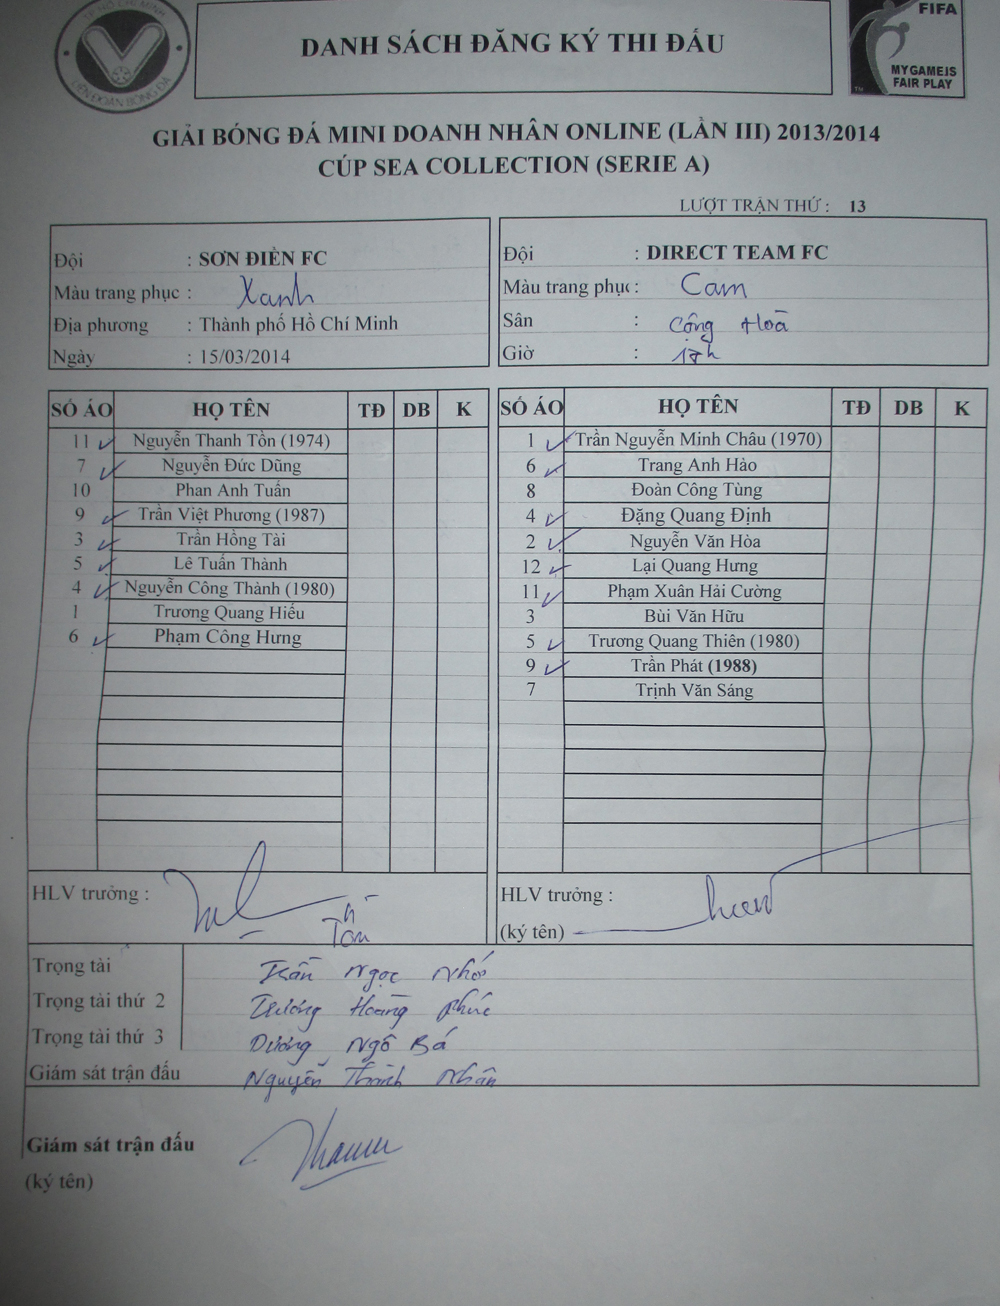 TP HỒ CHÍ MINH
LIÊN ĐOÀN BÓNG ĐÁ
DANH SÁCH ĐĂNG KÝ THI ĐẤU
FIFA
MY GAME IS
FAIR PLAY
GIẢI BÓNG ĐÁ MINI DOANH NHÂN ONLINE (LẦN III) 2013/2014
CÚP SEA COLLECTION (SERIE A)
LƯỢT TRẬN THỨ : 13
Đội : SƠN ĐIỀN FC
Màu trang phục : Xanh
Địa phương : Thành phố Hồ Chí Minh
Ngày : 15/03/2014
Đội : DIRECT TEAM FC
Màu trang phục : Cam
Sân : Cộng Hoà
Giờ : 17h
SỐ ÁO HỌ TÊN TĐ DB K
11 Nguyễn Thanh Tồn (1974)
7 Nguyễn Đức Dũng
10 Phan Anh Tuấn
9 Trần Việt Phương (1987)
3 Trần Hồng Tài
5 Lê Tuấn Thành
4 Nguyễn Công Thành (1980)
1 Trương Quang Hiếu
6 Phạm Công Hưng
SỐ ÁO HỌ TÊN TĐ DB K
1 Trần Nguyễn Minh Châu (1970)
6 Trang Anh Hào
8 Đoàn Công Tùng
4 Đặng Quang Định
2 Nguyễn Văn Hòa
12 Lại Quang Hưng
11 Phạm Xuân Hải Cường
3 Bùi Văn Hữu
5 Trương Quang Thiên (1980)
9 Trần Phát (1988)
7 Trịnh Văn Sáng
HLV trưởng :
HLV trưởng :
(ký tên)
Trọng tài Trần Ngọc Nhớ
Trọng tài thứ 2 Trương Hoàng Phúc
Trọng tài thứ 3 Dương Ngô Bá
Giám sát trận đấu Nguyễn Thành Nhân
Giám sát trận đấu
(ký tên)